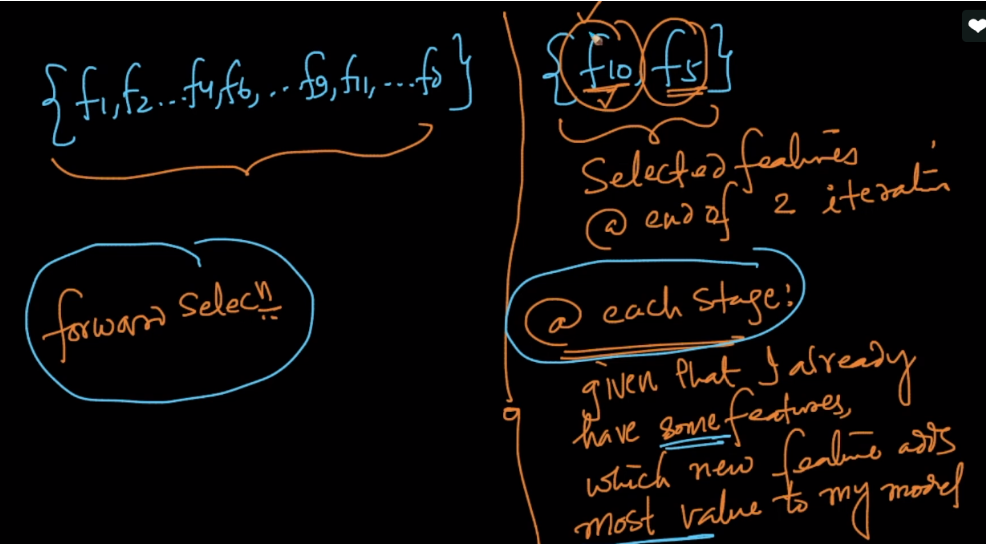 {f1, f2...f4, f6, ...f9, f11, ...fd}
forward Selecn
{f10, f5}
Selected features
@ end of 2 iteratin
@ each Stage:
given that I already
have some features,
which new feature adds
most value to my model